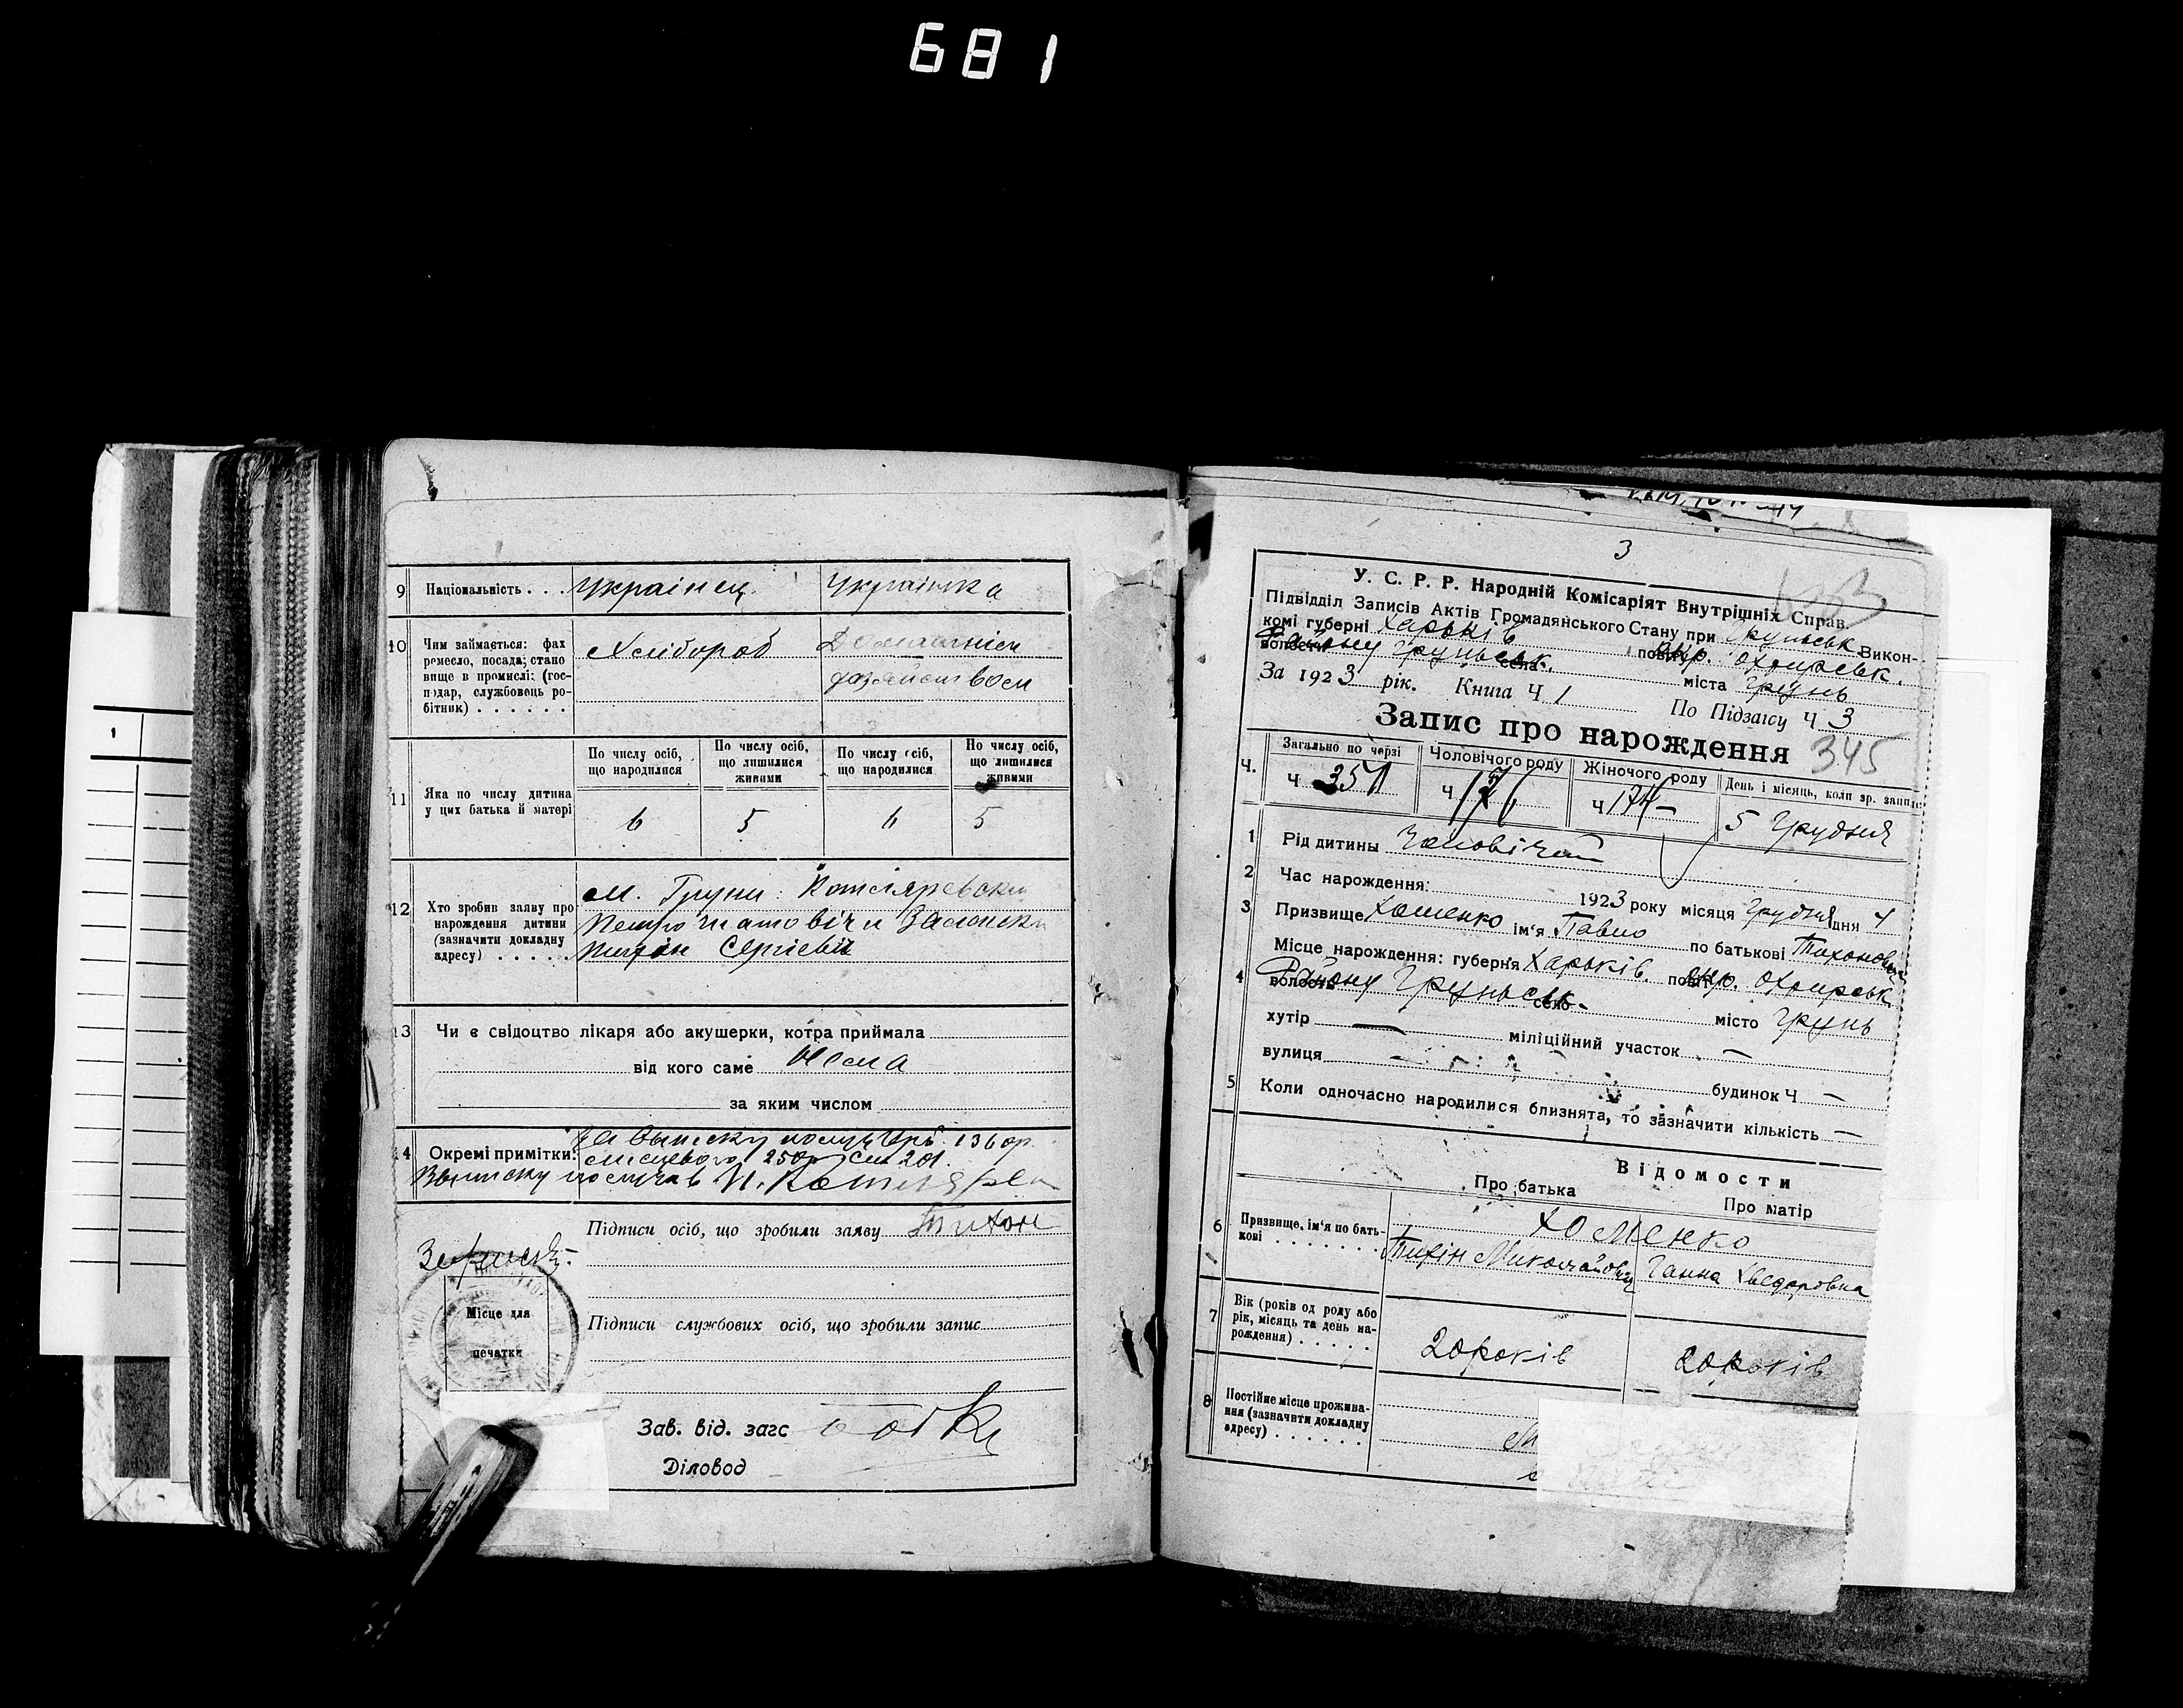 681
9 Національність . . . Украінец Украінка
10 Чим займається: фах
ремесло, посада; стано
вище в промислі: (гос-
подар, службовець ро-
бітник) . . . . . .
Хлібороб
11 Яка по числу дитина
у цих батька й матері
По числу осіб,
що народилися
По числу осіб,
що лишилися
живими
По числу осіб,
що народилися
По числу осіб,
що лишилися
живими
6 5 6 5
12 Хто зробив заяву про
нарождення дитини
(зазначити докладну
адресу) . . . . .
м. Груни
Сергіевич
13 Чи є свідоцтво лікаря або акушерки, котра приймала
від кого саме Нема
за яким числом
14 Окремі примітки:
Підписи осіб, що зробили заяву Тихон
Місце для
печатки
Підписи службових осіб, що зробили запис
Зав. від. загс
Діловод
3
У. С. Р. Р. Народній Комісаріят Внутрішніх Справ.
Підвідділ Записів Актів Громадянського Стану при Груньськ. Викон-
комі губерні Харьків повіту окр. Охтирськ.
волость Району Груньськ. села міста Грунь
За 1923 рік. Книга Ч 1 По Підзагсу Ч 3
Запис про народження 345
Ч. Загально по черзі Чоловічого роду Жіночого роду День і місяць, коли зр. запис
Ч 351 Ч 176 Ч 174 5 Грудня
1 Рід дитини Чоловічий
2 Час нарождення: 1923 року місяця Грудня дня 4
3 Призвище Хоменко ім'я Павло по батькові Тихонович
4 Місце нарождення: губерня Харьків. повіт окр. Охтирськ
волость Району Груньськ село місто Грунь
хутір — міліційний участок —
вулиця — будинок Ч —
5 Коли одночасно народилися близнята, то зазначити кількість —
Відомости
Про батька Про матір
6 Призвище, ім'я по бать-
кові . . . . . . .
Хоменко
Тихін Миколайович Ганна Хведоровна
7 Вік (років од роду або
рік, місяць та день на-
рождення) . . . . .
20 років 20 років
8 Постійне місце прожива-
ння (зазначити докладну
адресу) . . . . . .